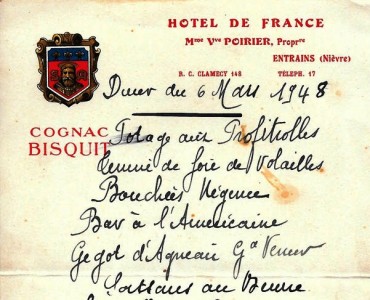 HOTEL DE FRANCE
Mme Vve POIRIER, Propre
ENTRAINS (Nièvre)
R. C. CLAMECY 148 TÉLÉPH. 17
Diner du 6 Mars 1948
COGNAC
BISQUIT
Potage aux Profitrolles
de foie de Volailles
Bouchées Régence
Bar à l'Americaine
Gegot d'Agneau Gd Veneur
au Beurre